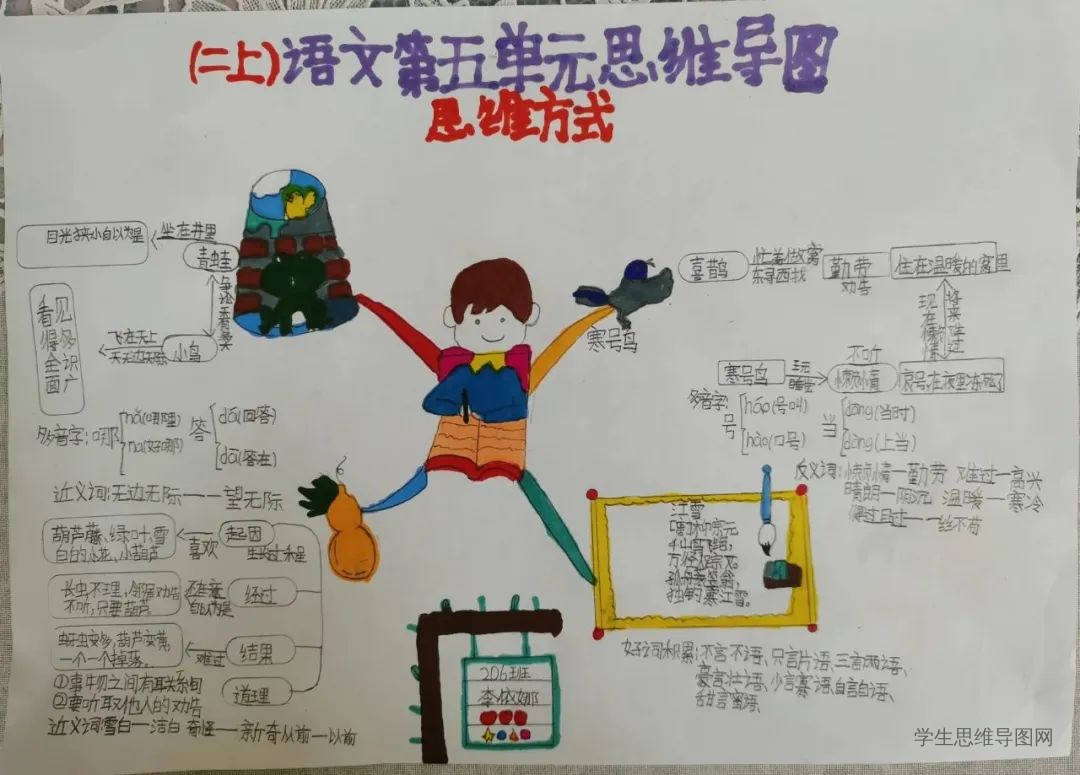 (二上)语文第五单元思维导图
思维方式
目光狭小自以为是
坐在井里
青蛙
争论
看见
慢够
全识
面广
飞在天上
天无边无际
小鸟
多音字:哪
nǎ(哪里)
na(好哪)
答
dá(回答)
dā(答在)
近义词:无边无际——一望无际
葫芦藤、绿叶、雪
白的小花、小葫芦
喜欢
起因
生长过程
长虫不理,邻居劝告
不听,只要葫芦。
自以为是
经过
蚜虫变多,葫芦变黄,
一个一个掉落。
难过
结果
①事物之间有联系的
②要听取他人的劝告
道理
近义词雪白—洁白 奇怪—新奇从前—以前
喜鹊
忙着做窝
东寻西找
勤劳
劝告
住在温暖的窝里
寒号鸟
现在懒惰
将来难过
寒号鸟
不听
懒惰
哀号,在夜里冻死了
多音字:
号
háo(号叫)
hào(口号)
当
dāng(当时)
dàng(上当)
反义词:懒惰—勤劳 难过—高兴
晴朗—阴沉 温暖—寒冷
得过且过—一丝不苟
江雪
唐 柳宗元
千山鸟飞绝,
万径人踪灭。
孤舟蓑笠翁,
独钓寒江雪。
好词积累:不言不语、只言片语、三言两语、
豪言壮语、少言寡语、自言自语、
甜言蜜语、
206班
李依娜
学生思维导图网